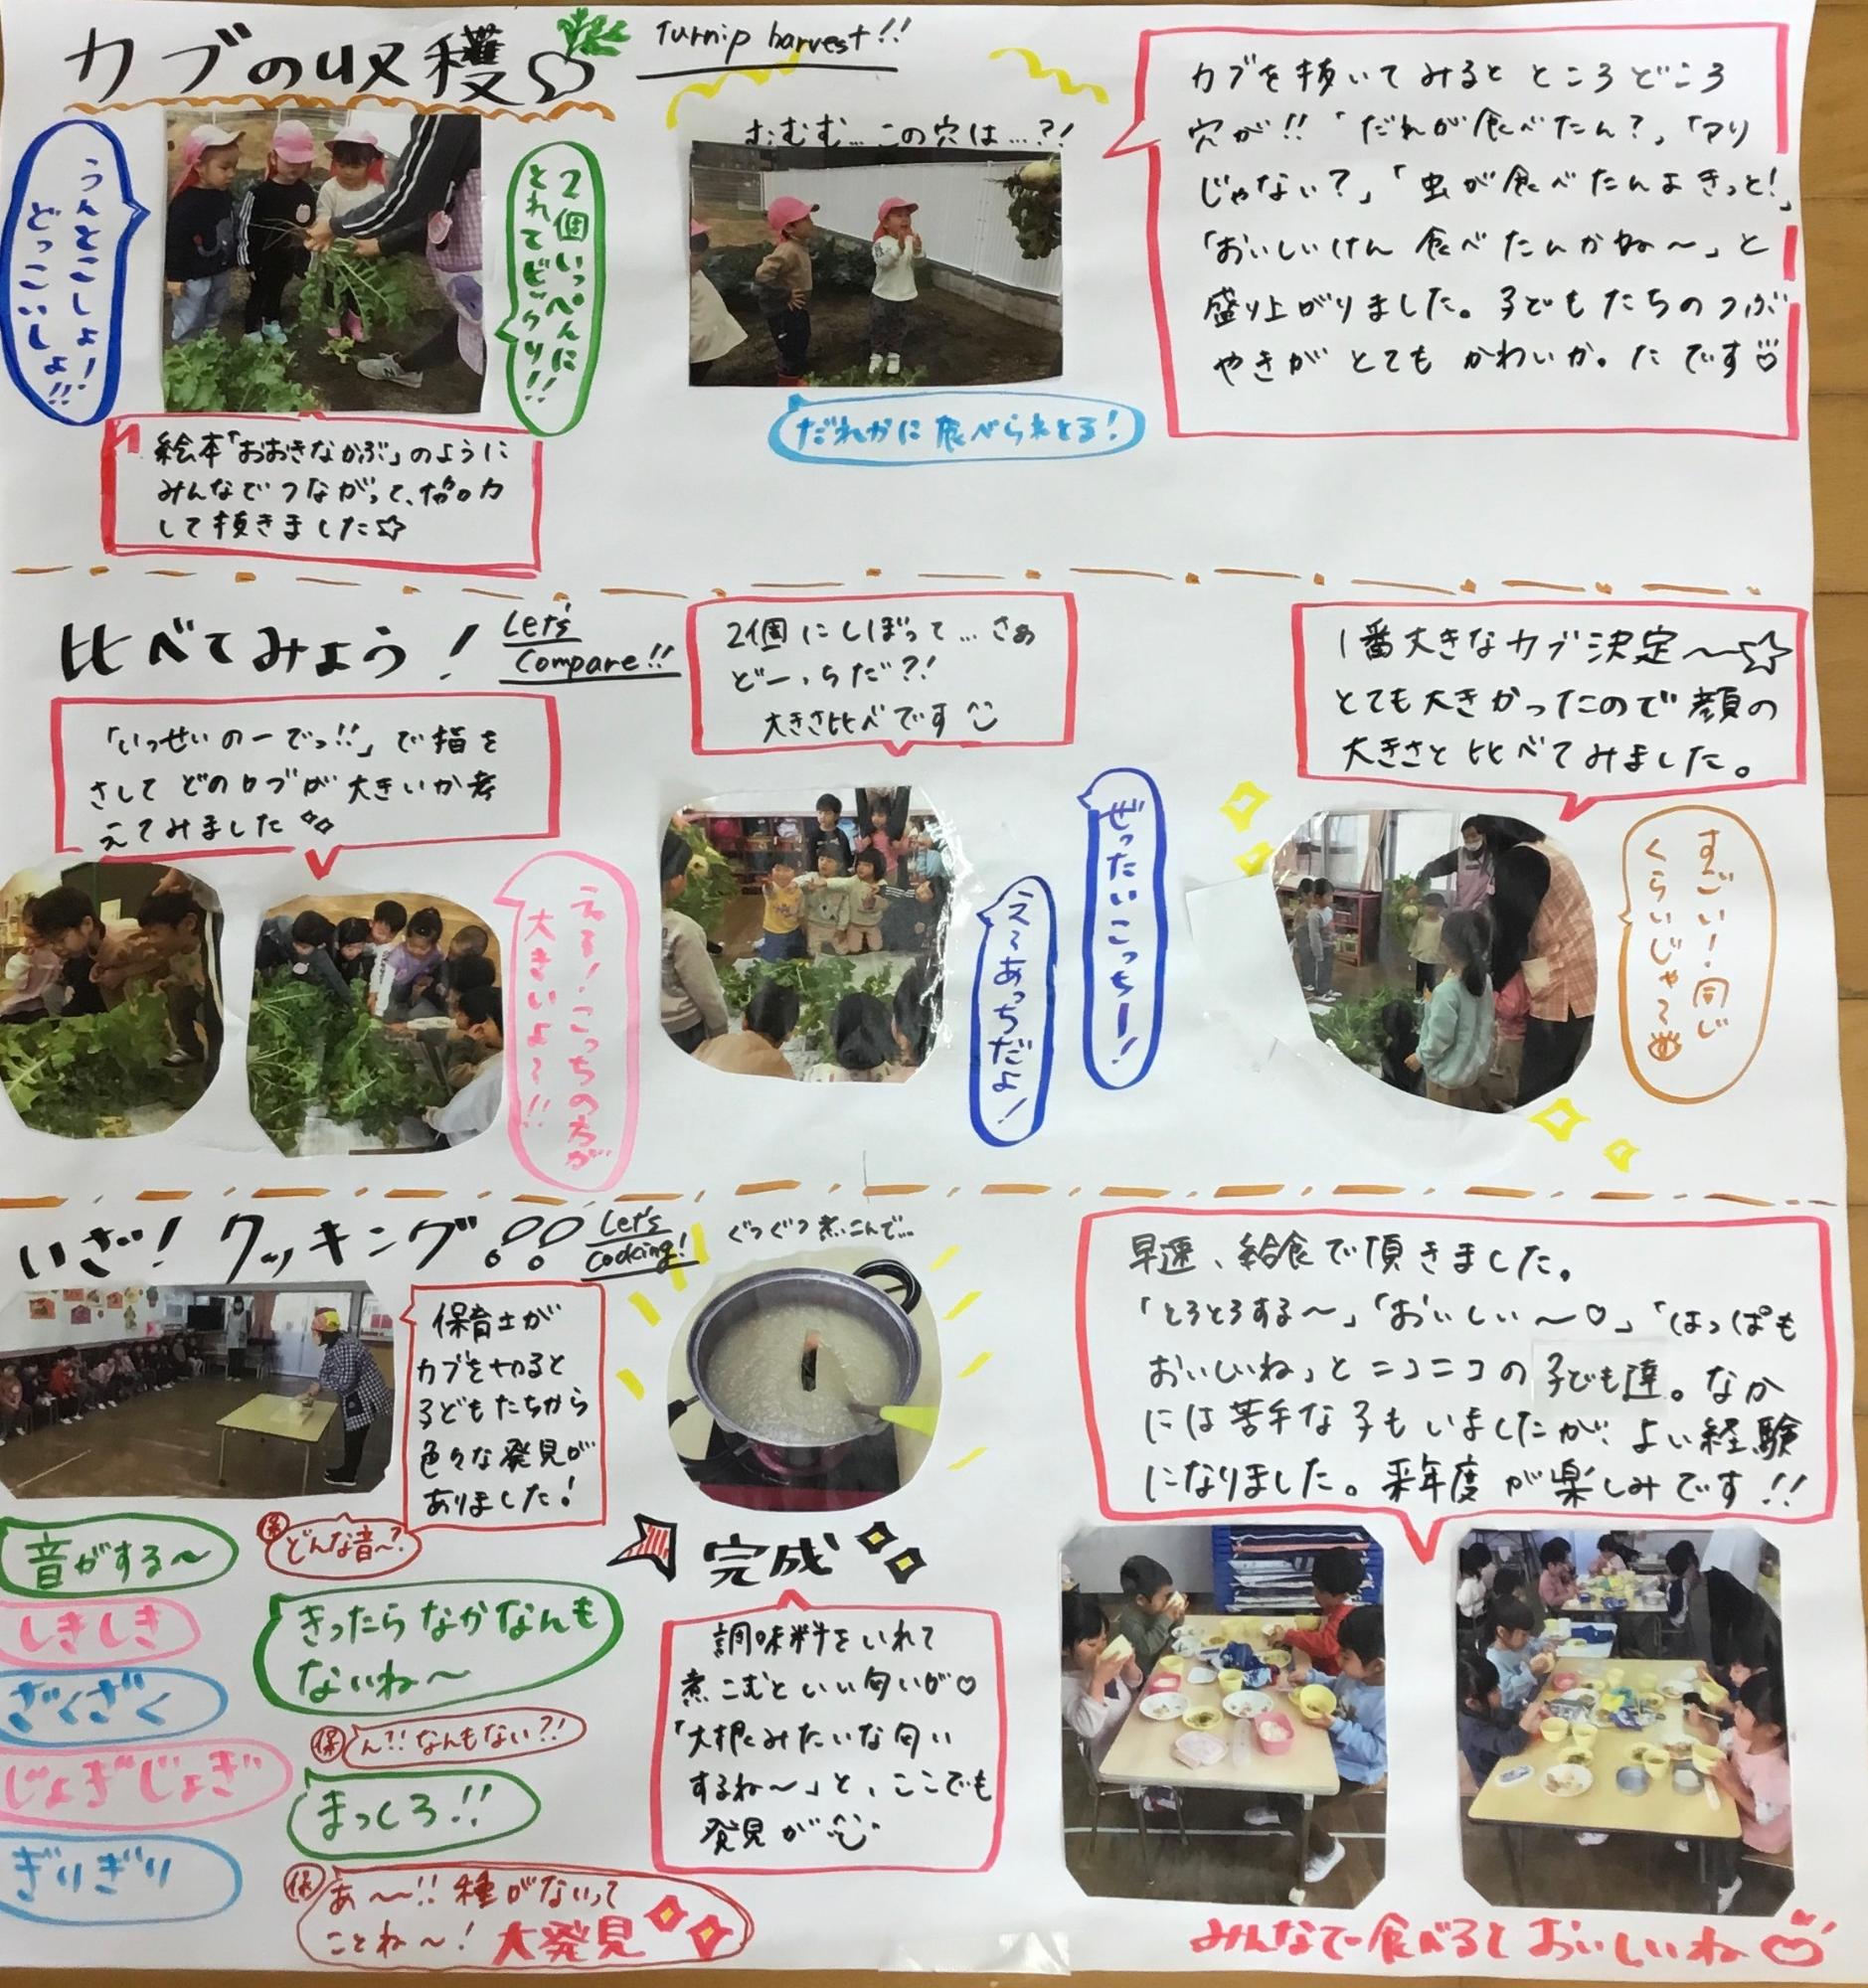 カブの収穫
Turnip harvest!!
うんとこしょ!
どっこいしょ!!
2個いっぺんに
とれてビックリ!!
絵本「おおきなかぶ」のように
みんなでつながって、協力
して抜きました☆
むむむ…この穴は…?!
だれかに食べられとる!
カブを抜いてみるとところどころ
穴が!!「だれが食べたん?」「アリ
じゃない?」「虫が食べたんよきっと!」
「おいしいけん食べたんかね〜」と
盛り上がりました。子どもたちのつぶ
やきがとてもかわいかったです♡
比べてみよう!
Let's
Compare!!
「いっせいのーでっ!!」で指を
さしてどのカブが大きいか考
えてみました
える!こっちの方が
大きいよ〜!!
2個にしぼって…さぁ
どーっちだ?!
大きさ比べです
ぜったいこっちー!
え〜あっちだよ!
1番大きなカブ決定〜☆
とても大きかったので顔の
大きさと比べてみました。
すごい!同じ
くらいじゃ〜
いざ!クッキング
Let's
Cooking!
保育士が
カブを切ると
子どもたちから
色々な発見が
ありました!
音がする〜
しきしき
ざくざく
じょぎじょぎ
ぎりぎり
保 どんな音〜?
きったらなかなんも
ないね〜
保 ん?!なんもない?!
まっしろ!!
保 あ〜〜!!種がないって
ことね〜!大発見
ぐつぐつ煮こんで…
完成
調味料をいれて
煮こむといい匂いが♡
「大根みたいな匂い
するね〜」と、ここでも
発見が
早速、給食で頂きました。
「とろとろする〜」「おいしい〜♡」「はっぱも
おいしいね」とニコニコの子ども達。なか
には苦手な子もいましたが、よい経験
になりました。来年度が楽しみです!!
みんなで食べるとおいしいね